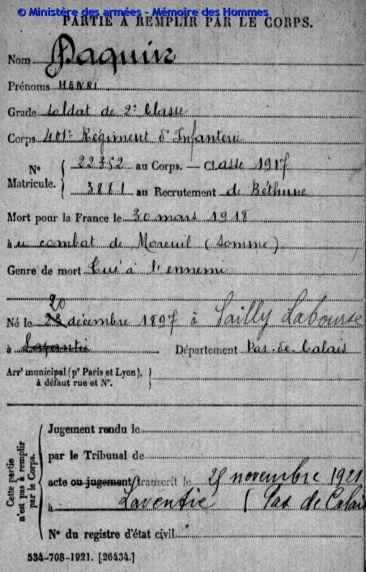 © Ministère des armées - Mémoire des Hommes
PARTIE À REMPLIR PAR LE CORPS.
Nom Paquin
Prénoms HENRI
Grade Soldat de 2e Classe
Corps 401e Régiment d'Infanterie
No 22352 au Corps. — Classe 1917
Matricule. 3881 au Recrutement de Béthune
Mort pour la France le 30 mars 1918
au combat de Moreuil (Somme)
Genre de mort Tué à l'ennemi
20
Né le décembre 1897 à Sailly Labourse
à Département Pas-de-Calais
Arrt municipal (pr Paris et Lyon),
à défaut rue et No.
Cette partie
n'est pas à remplir
par le Corps.
Jugement rendu le
par le Tribunal de
acte ou jugement transcrit le 25 novembre 1921
à Laventie (Pas de Calais
No du registre d'état civil
534-708-1921. [26434.]